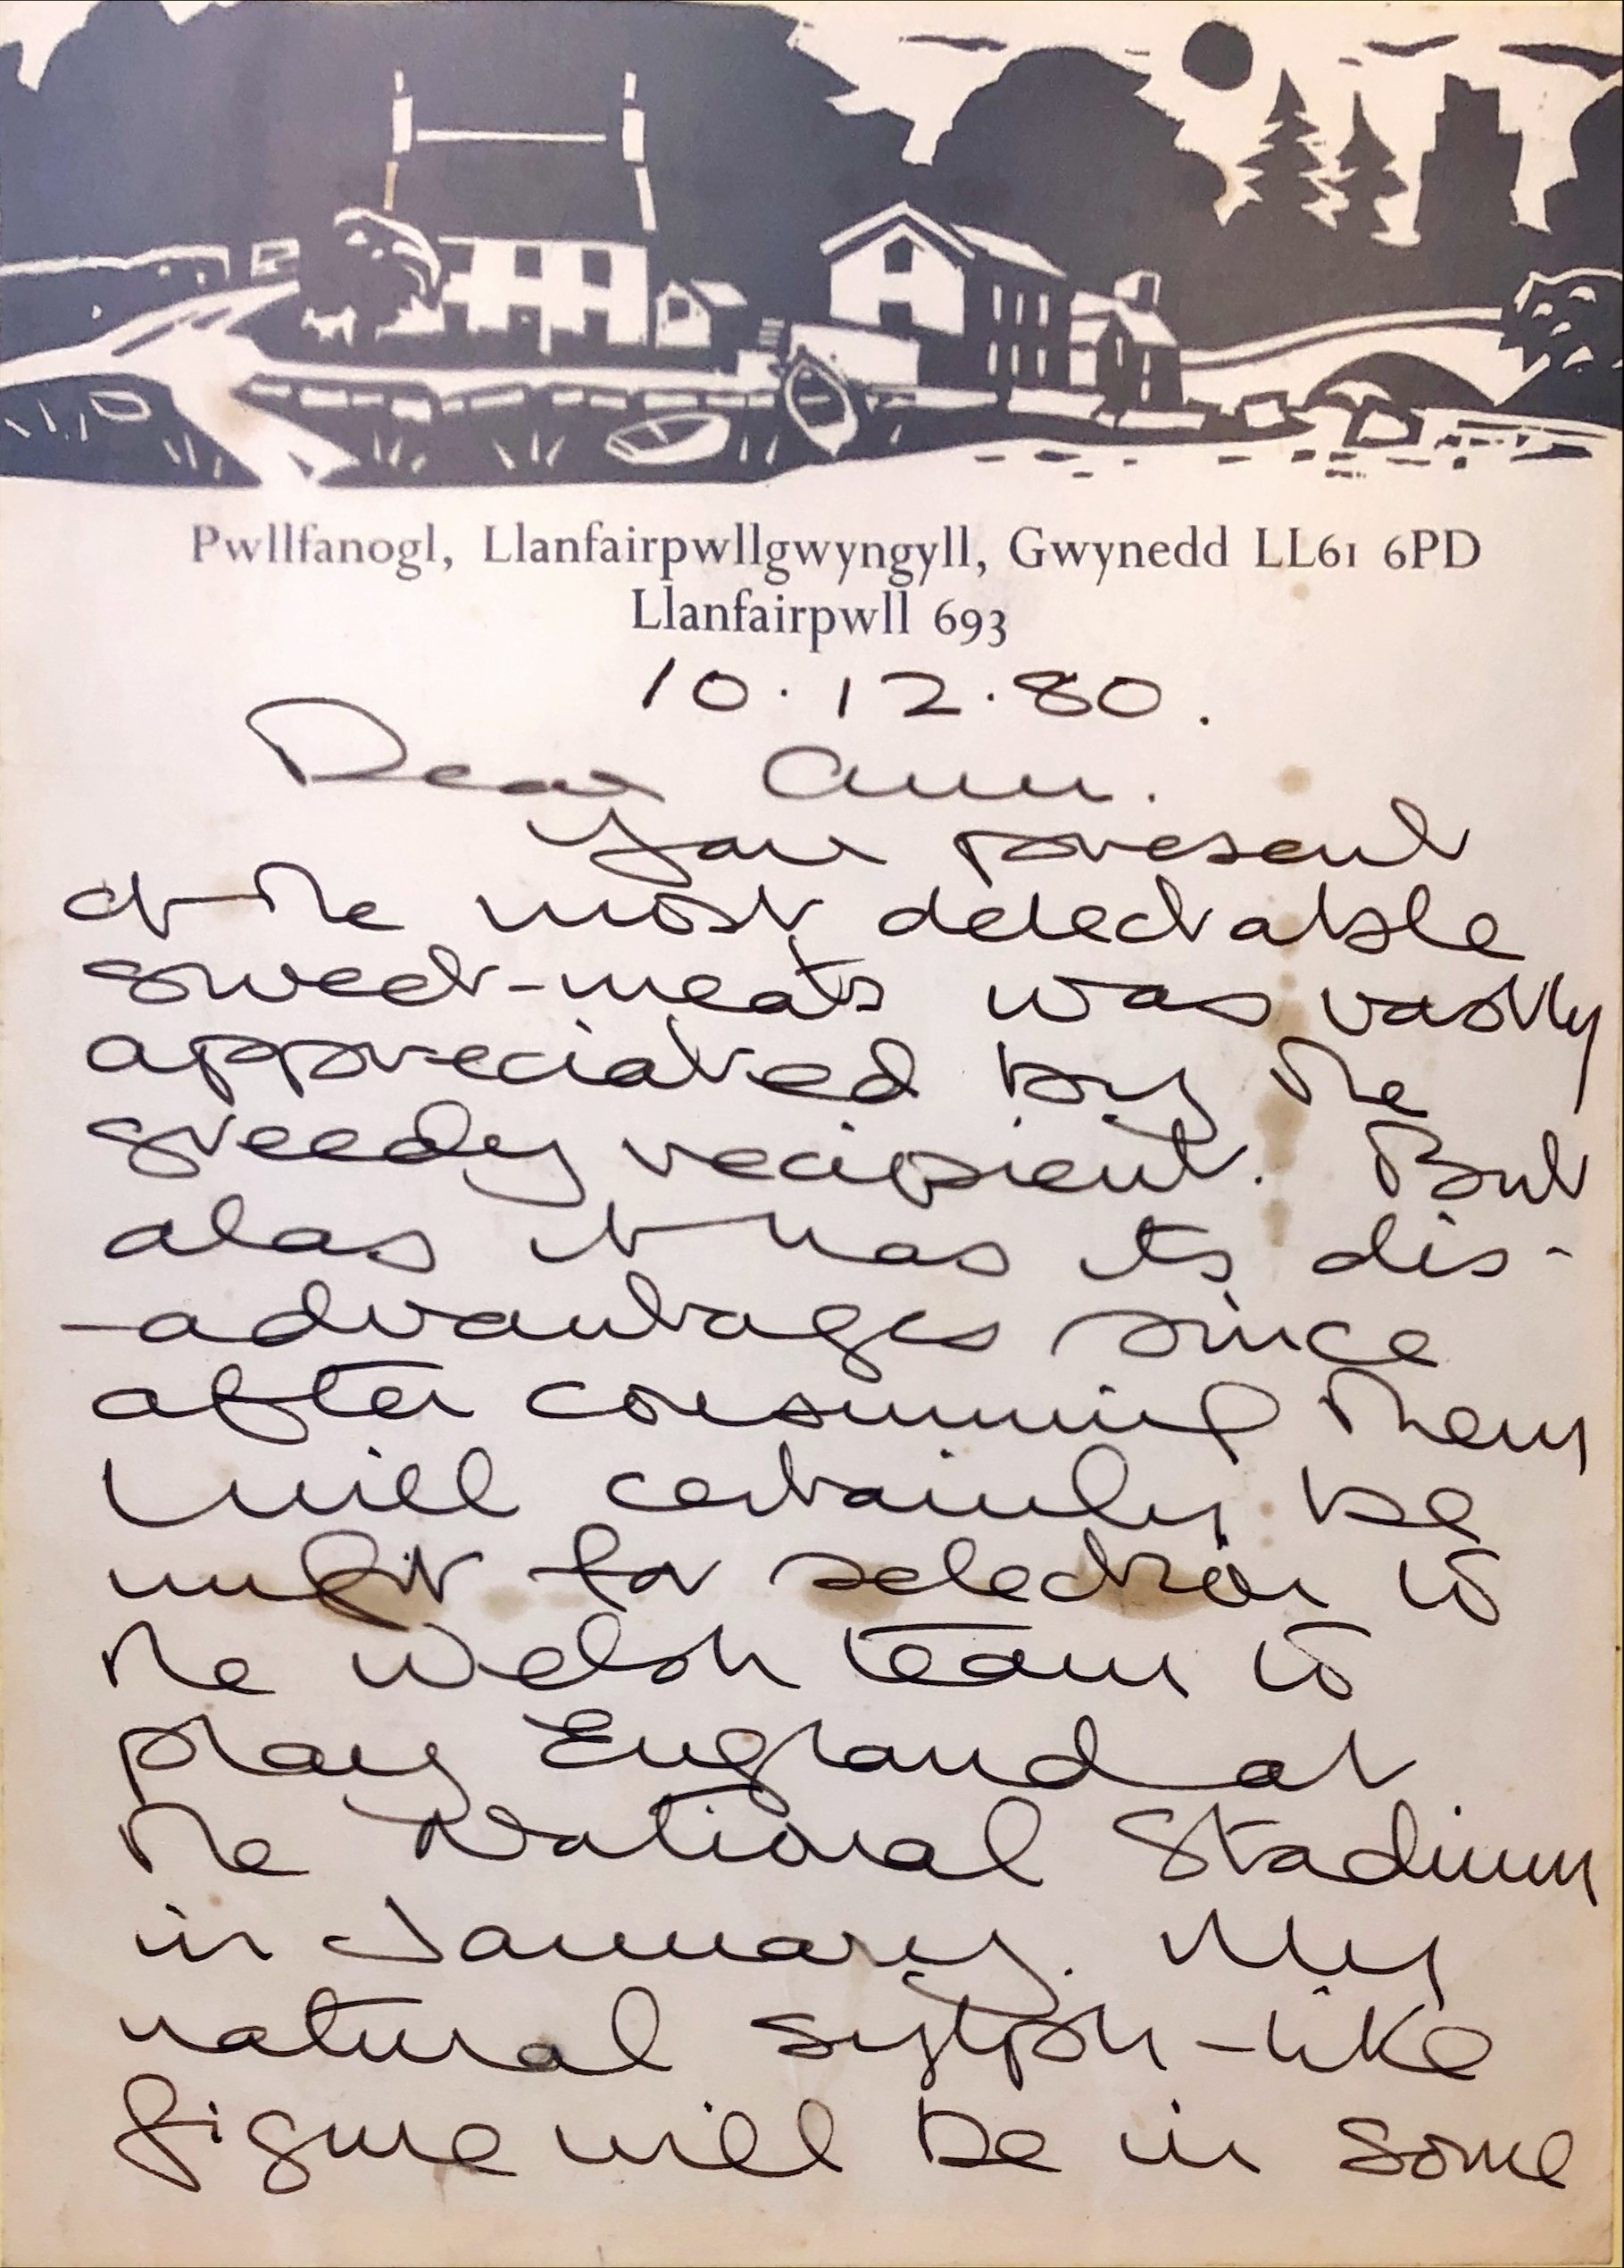 Pwllfanogl, Llanfairpwllgwyngyll, Gwynedd LL61 6PD
Llanfairpwll 693
10.12.80.
Dear Ann.
Your present
of the most delectable
sweet-meats was vastly
appreciated by the
greedy recipient. But
alas it has its dis-
-advantages since
after consuming them
I will certainly be
unfit for selection to
the Welsh team to
play England at
the National Stadium
in January. My
natural sylph-like
figure will be in some